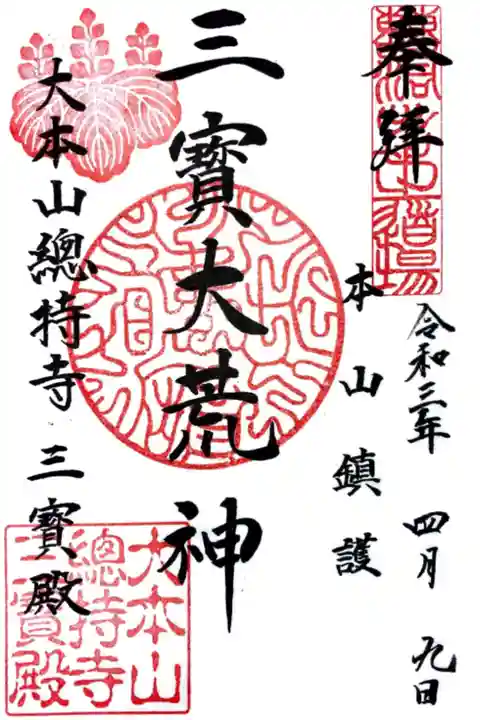 奉拜
令和三年 四月 九日
本山鎮護
三寶大荒神
大本山總持寺 三寶殿
大本山
總持寺
三寶殿